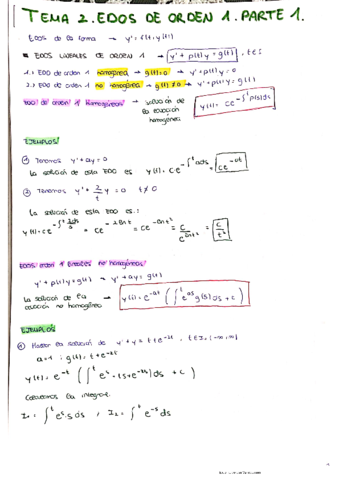 TEMA 2. EDOS DE ORDEN 1. PARTE 1.
EDOS de la forma → y' = f(t, y(t))
* EDOS LINEALES DE ORDEN 1 → y' + p(t)y = g(t), t ∈ I
1.) EDO de orden 1 homogénea → g(t) = 0 → y' + p(t)y = 0
2.) EDO de orden 1 no homogénea → g(t) ≠ 0 → y' + p(t)y = g(t)
EDO de orden 1 Homogéneas → solución de la ecuación homogénea y(t) = ce^{-∫^t p(s)ds}
EJEMPLOS
① Tenemos y' + ay = 0
La solución de esta EDO es y(t) = ce^{-∫^t a ds} = ce^{-at}
② Tenemos y' + 2/t y = 0 t ≠ 0
La solución de esta EDO es:
y(t) = ce^{-∫^t 2/s ds} = ce^{-2 ln t} = ce^{-ln t²} = c/e^{ln t²} = c/t²
EDOS orden 1 lineales no homogéneas
y' + p(t)y = g(t) → y' + ay = g(t)
La solución de la ecuación no homogénea y(t) = e^{-at} (∫^t e^{as} g(s) ds + c)
EJEMPLOS
① Hallar la solución de y' + y = t + e^{-2t}, t ∈ I = (-∞, ∞)
a = 1 ; g(t) = t + e^{-2t}
y(t) = e^{-t} (∫^t e^s · (s + e^{-2s}) ds + c)
Calculamos la integral.
I₁ = ∫^t e^s · s ds , I₂ = ∫^t e^{-s} ds